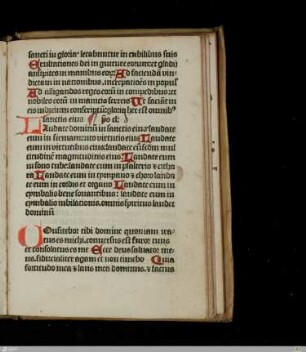 sancti in gloria: letabuntur in cubilibus suis
Exultationes dei in gutture eorum: et gladij
ancipites in manibus eorum Ad faciendam vin
dictam in nationibus, increpationes in populis
Ad alligandos reges eorum in compedibus: et
nobiles eorum in manicis ferreis Ut faciant in
eis iudicium conscriptum: gloria hec est omnibus
sanctis eius
Laudate dominum in sanctis eius: laudate
eum in firmamento virtutis eius Laudate
eum in virtutibus eius: laudate eum secundum mul
titudinem magnitudinis eius Laudate eum
in sono tube: laudate eum in psalterio et cytha
ra Laudate eum in tympano et choro: lauda
te eum in cordis et organo Laudate eum in
cymbalis bene sonantibus: laudate eum in
cymbalis iubilationis. omnis spiritus laudet
dominum
Confitebor tibi domine quoniam ira
tus es michi. conuersus est furor tuus
et consolatus es me Ecce deus saluator me
us. fiducialiter agam et non timebo Quia
fortitudo mea et laus mea dominus. et factus